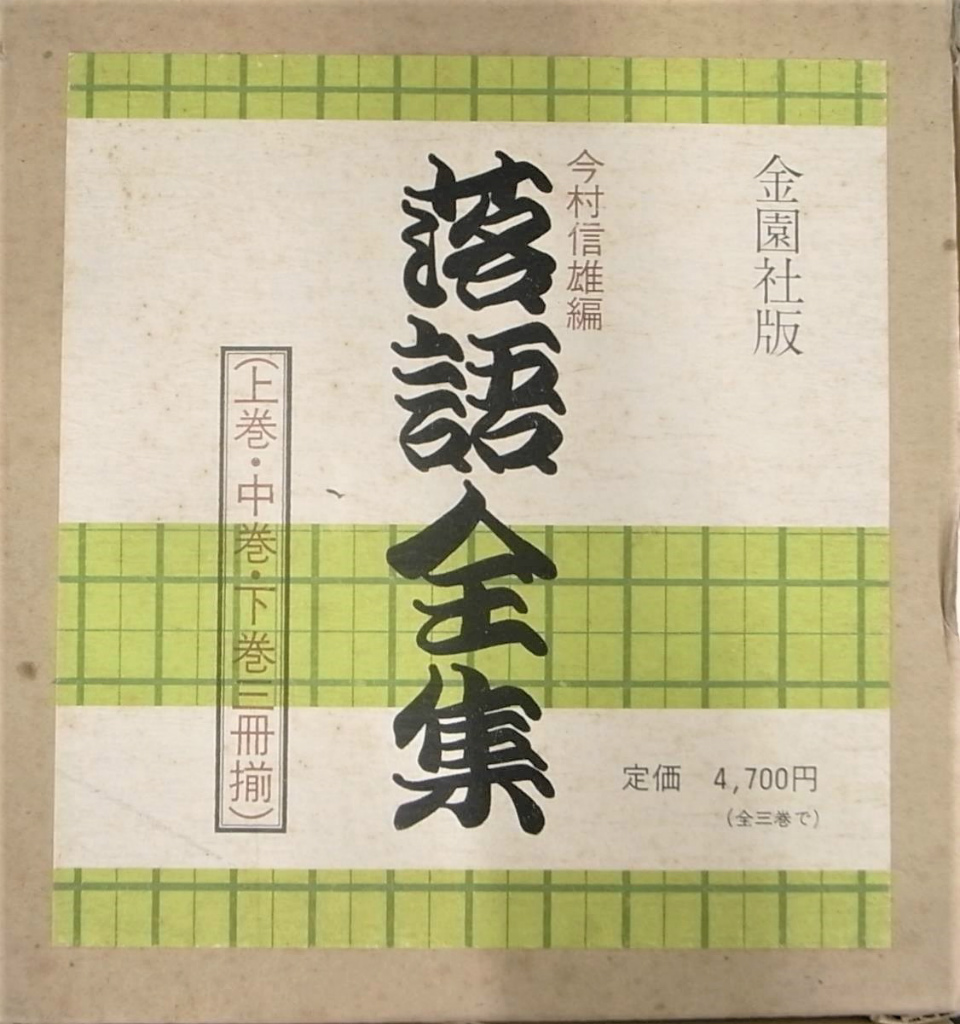 金園社版
今村信雄編
落語全集
(上巻・中巻・下巻三冊揃)
定価 4,700円
(全三巻で)